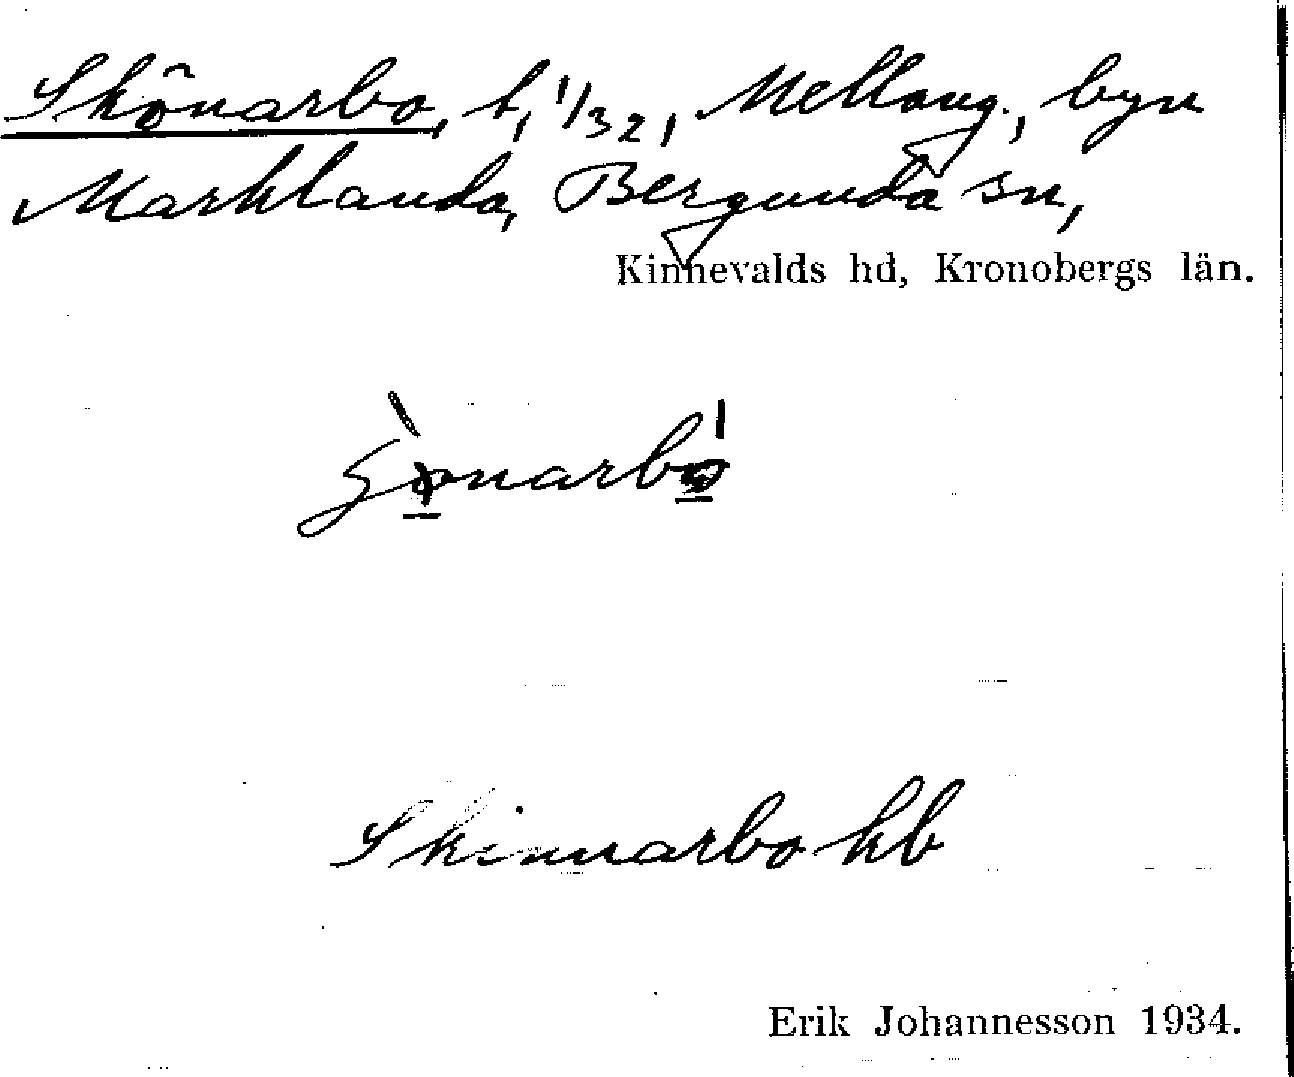 Skönarbo, t, 1/32, Mellang., byn
Marklanda, Bergunda sn,
Kinnevalds hd, Kronobergs län.
Skinnarbo kb
Erik Johannesson 1934.